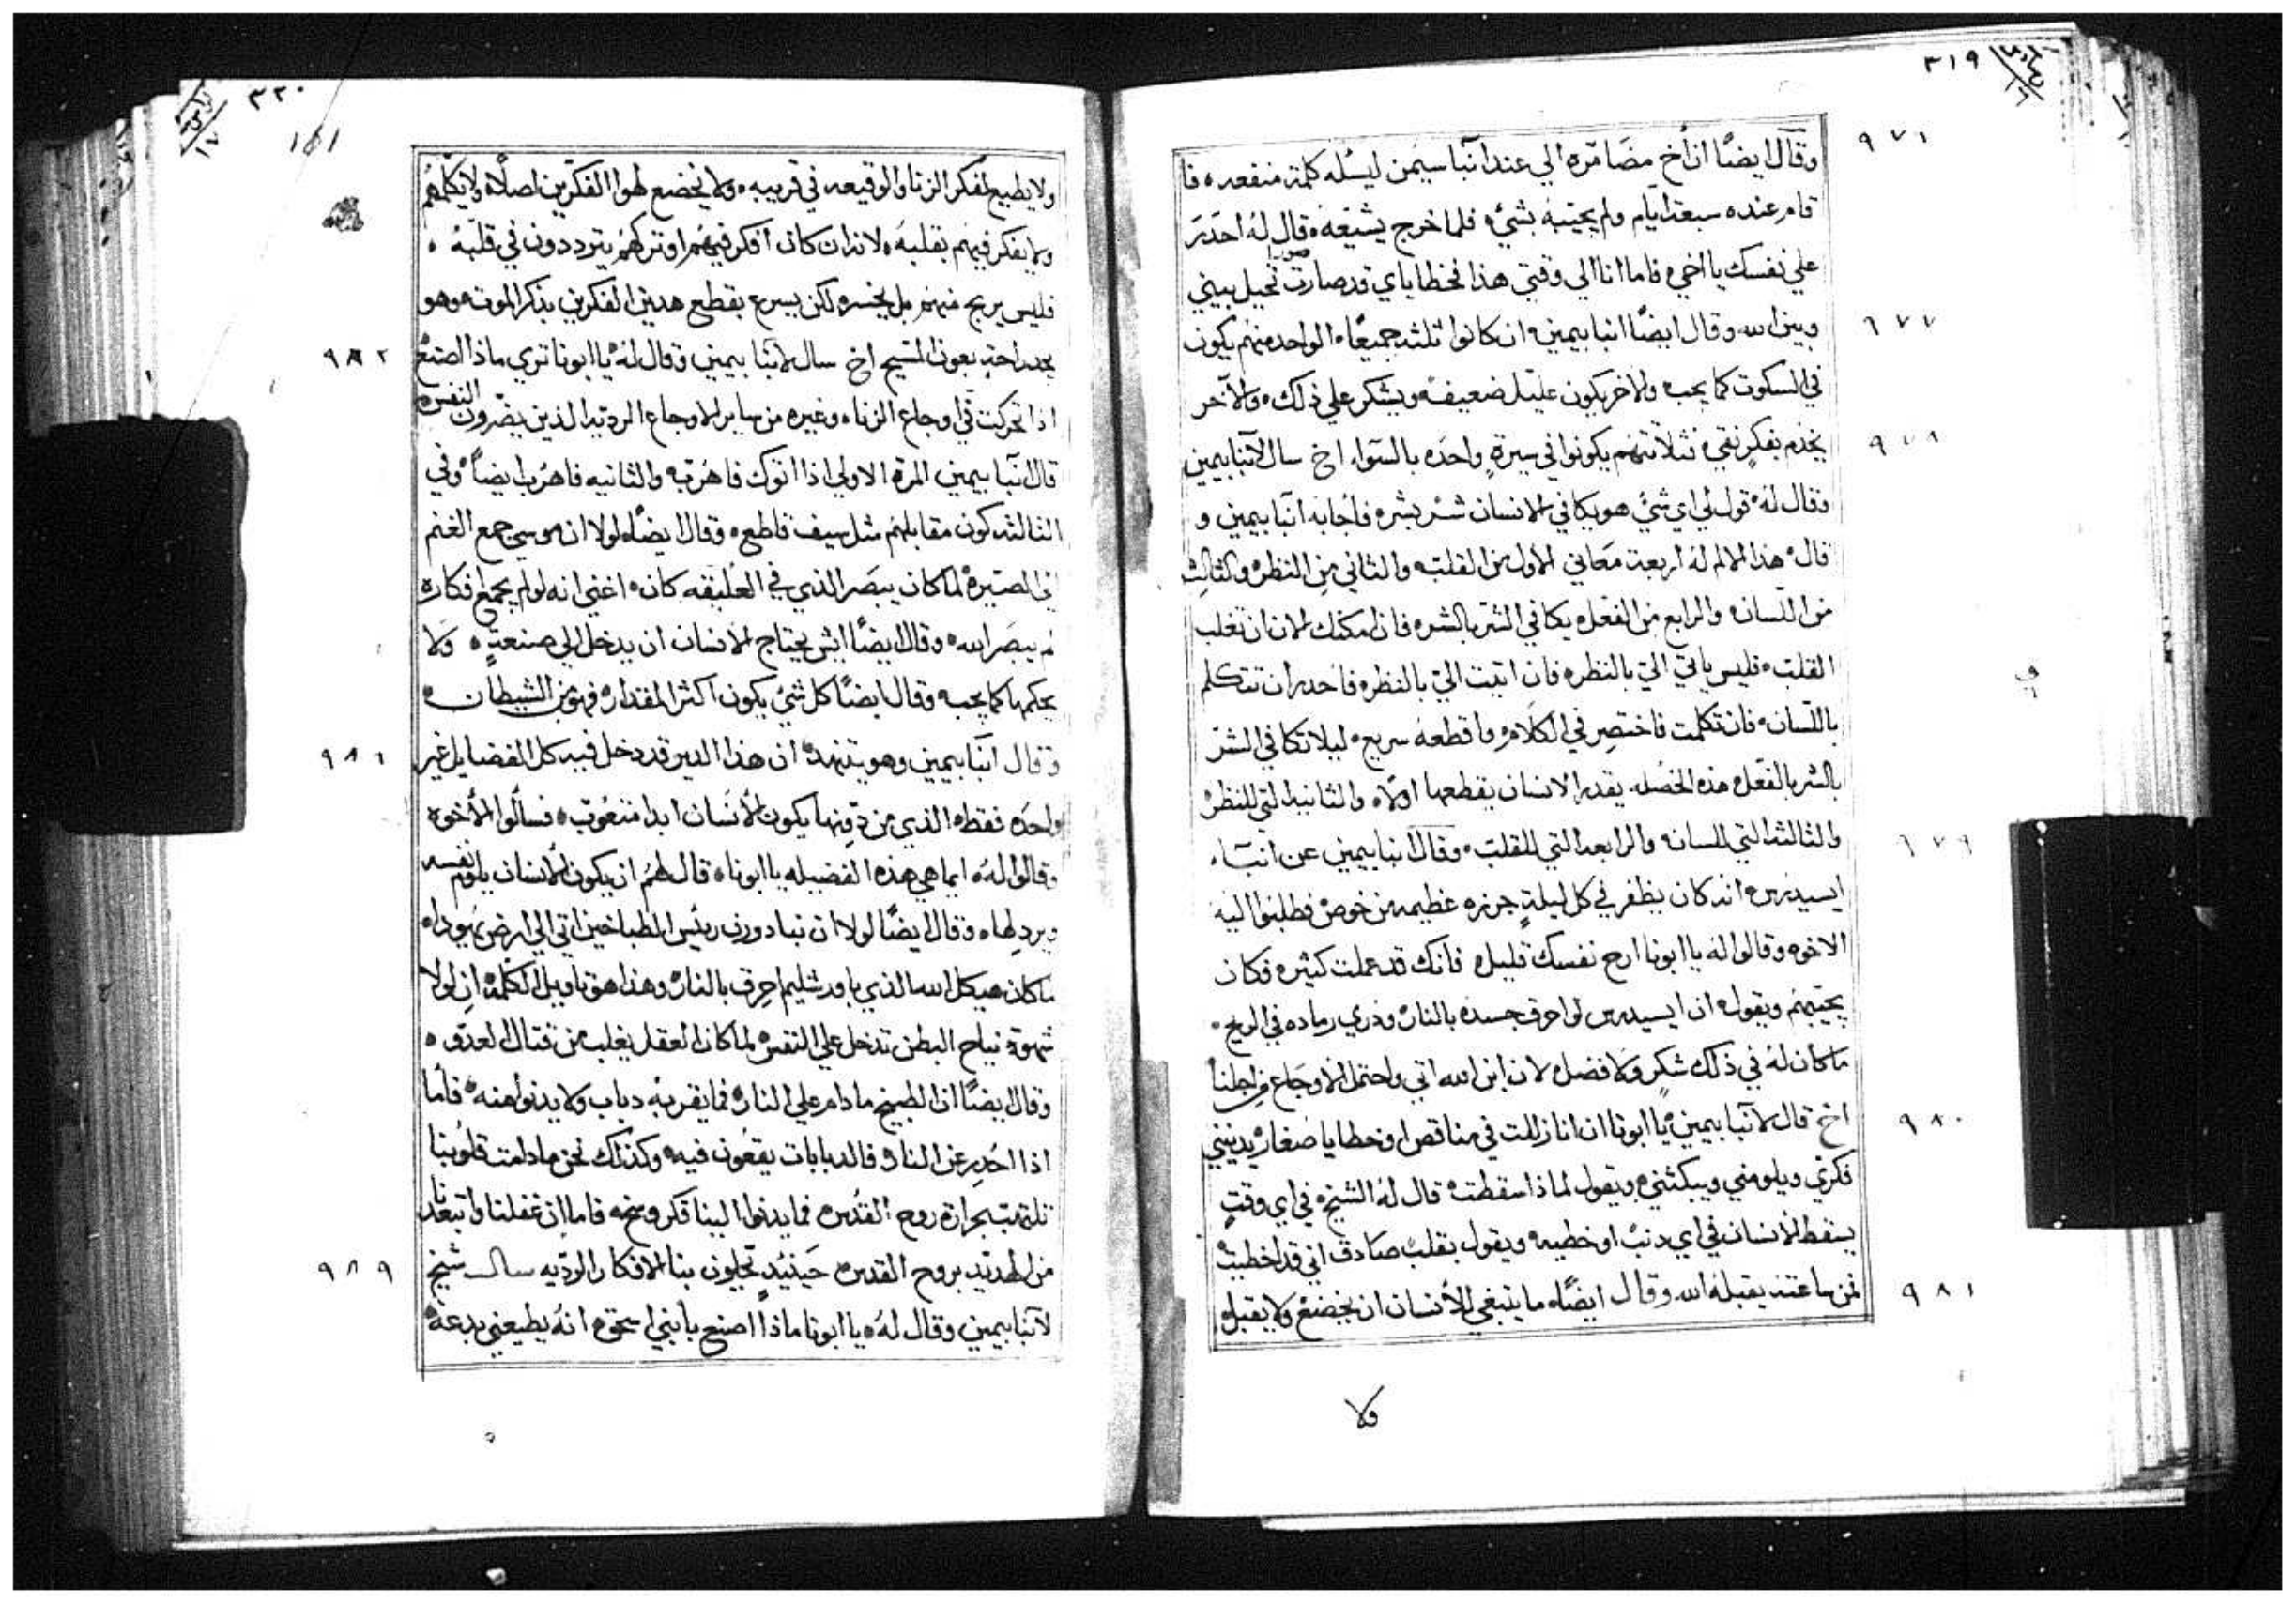 ٣١٩
٩٧٦
وقال ايضًا ان أخ مضا مره الي عند أنبا سيمن ليسله كلمة منفعه ٠ فا
قام عنده سبعة أيام ولم يجيبه بشيء فلما خرج يشيعه ٠ قال له احدر
علي نفسك يا اخي ٠ فاما انا الي وقتي هذا فخطاياي قد صارت تحيل بيني
٩٧٧
وبين الله وقال ايضًا انبا بيمين ان كانوا ثلثه جميعًا ٠ الواحد منهم يكون
في السكوت كما يجب والاخر يكون عليل ضعيف ويشكر علي ذلك ٠ والآخر
٩٧٨
يخدم بفكر نقي ٠ فثلاثتهم يكونوا في سيرةٍ واحده بالسوا ٠ اخ سال لآنبا بيمين
وقال له ٠ قول لي اي شي هو يكافي الانسان شر بشر ٠ فاجابه انبا بيمين و
قال ٠ هذا الالم له أربعة معاني الاول من القلب ٠ والثاني من النظر ٠ والثالث
من اللسان ٠ والرابع من الفعل ٠ يكافي الشر بالشر ٠ فان امكنك الان ان تغلب
القلب ٠ فليس ياتي الي بالنظر ٠ فان اتيت الي بالنظر ٠ فاحدر ان تتكلم
باللسان ٠ فان تكلمت فاختصر في الكلام ٠ واقطعه سريع ٠ ليلا تكافي الشر
بالشر بالفعل ٠ هذه الخصله يقدر الانسان يقطعها اولًا ٠ والثانيه التي للنظر
٩٧٩
والثالثه التي للسان ٠ والرابعه التي للقلب ٠ وقال انبا بيمين عن انبا ٠
ايسيدرس ٠ انه كان يظفر في كل ليلةٍ جرزه عظيمه من خوص ٠ فطلبوا اليه
الاخوه وقالوا له يا ابونا ارح نفسك قليل ٠ فانك قد عملت كثير ٠ فكان
يجيبهم ويقول ٠ ان ايسيدرس لو احرق جسده بالنار ٠ وذري رماده في الريح ٠
ما كان له في ذلك شكرٍ ولا فضل ٠ لان ابن الله اتي واحتمل الاوجاع من اجلنا
٩٨٠
اخ قال لآنبا بيمين ٠ يا ابونا ان انا زللت في مناقص وخطايا صغار ٠ يدينني
فكري ويلومني ويبكتني ٠ ويقول لماذا سقطت ٠ قال له الشيخ ٠ في اي وقتٍ
يسقط الانسان في اي دنب او خطيه ٠ ويقول بقلب صادق اني قد اخطيت
٩٨١
فمن ساعته يقبله الله وقال ايضًا ٠ ما ينبغي للأنسان ان يخضع ولا يقبل ٠
ولا
٣٢٠
١٦١
ولا يطيع لفكر الزنا والوقيعه في قريبه ٠ ولا يخضع لهوا الفكرين اصلًا ٠ ولا يكلمهم
ولا يفكر فيهم بقلبه ٠ لانه ان كان افكر فيهم او تركهم يترددون في قلبه ٠
فليس يربح منهم بل يخسر ٠ لكن يسرع بقطع هدين الفكرين بذكر الموت ٠ وهو
٩٨٢
يجد راحة بعون المسيح اخ سال لآنبا بيمين وقال له ٠ يا ابونا تري ماذا اصنع
اذا تحركت في اوجاع الزنا ٠ وغيره من ساير الاوجاع الرديه الذين يضرون النفس ٠
قال انبا بيمين المرة الاولي اذا اتوك فاهرب ٠ والثانيه فاهرب ايضًا ٠ وفي
الثالثه كون مقابلهم مثل سيف قاطع ٠ وقال ايضًا ٠ لولا ان موسي جمع الغنم
في الصيره لما كان يبصر الذي في العليقه كان ٠ اعني انه لو لم يجمع افكاره
لم يبصر الله ٠ وقال ايضًا ايش يحتاج الانسان ان يدخل الي صنعةٍ ٠ ولا
يحكمها كما يجب ٠ وقال ايضًا كل شي يكون اكثر المقدار ٠ فهو من الشيطان ٠
٩٨٦
وقال انبا بيمين وهو يتنهد ٠ ان هذا الدير قد دخل فيه كل الفضايل غير
واحده فقط ٠ الذي من دونها يكون الأنسان ابدا متعوب ٠ فسالوا الأخوه
وقالوا له ٠ ايما هي هذه الفضيله يا ابونا ٠ قال لهم ان يكون الانسان يلوم نفسه
ويردلها ٠ وقال ايضًا لولا ان نبادورن ريس الطباخين اتي الي ارض يهودا ٠
ما كان هيكل الله الذي باورشليم احرق بالنار ٠ وهذا هو تاويل الكلمة ٠ ان لولا
شهوة نياح البطن تدخل علي النفس ٠ لما كان العقل يغلب من قتال العدو ٠
وقال ايضًا ان الطبيخ ما دام علي النار ٠ فما يقربه دباب ولا يدنوا منه ٠ فأما
اذا احدر عن النار ٠ فالدبابات يقعون فيه ٠ وكذلك نحن ما دامت قلوبنا
تلتهب بحرارة روح القدس ٠ فما يدنوا الينا فكر وسخ ٠ فاما ان غفلنا وابتعدنا
٩٨٩
من الحديث بروح القدس ٠ حينيدٍ تحيلون بنا الافكار الرديه سال شيخ
لآنبا بيمين وقال له ٠ يا ابونا ماذا اصنع بأبني اسحق ٠ انه يطيعني بدعة ٠